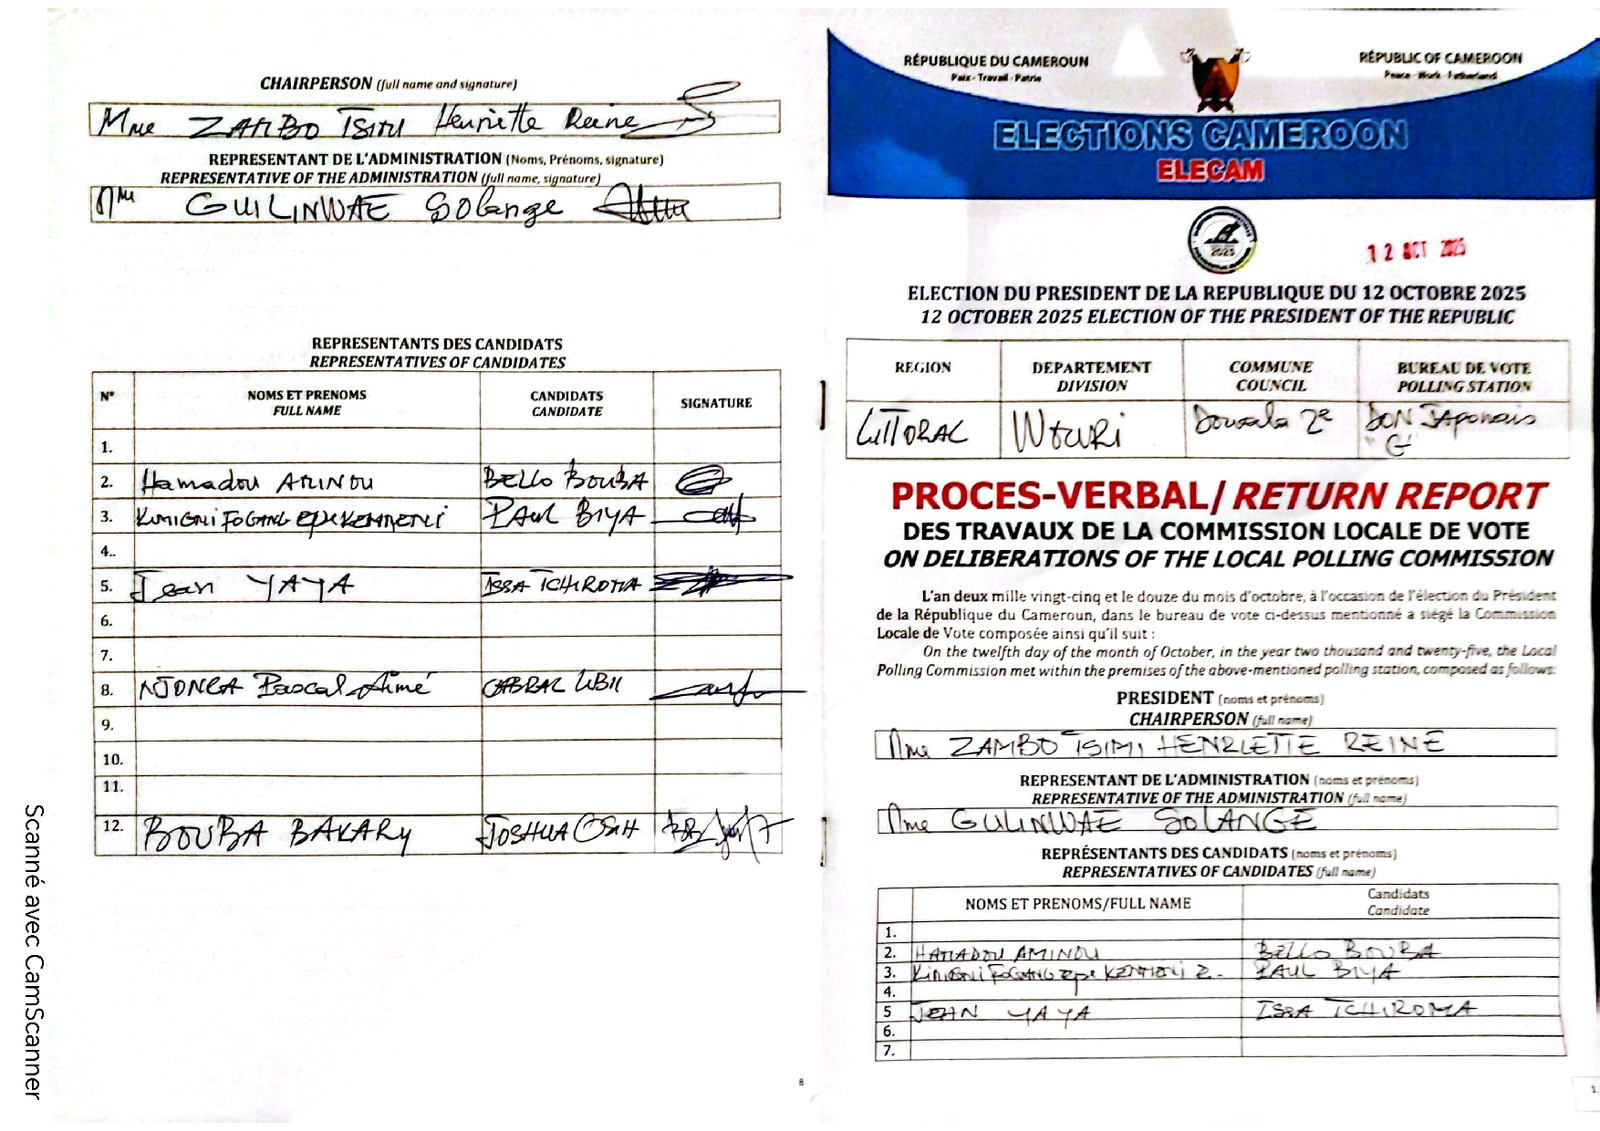 CHAIRPERSON (full name and signature)
Mme ZAMBO TSIMI Henriette Reine
REPRESENTANT DE L'ADMINISTRATION (Noms, Prénoms, signature)
REPRESENTATIVE OF THE ADMINISTRATION (full name, signature)
Mme GUILINWAE Solange
REPRESENTANTS DES CANDIDATS
REPRESENTATIVES OF CANDIDATES
N° NOMS ET PRENOMS CANDIDATS SIGNATURE
FULL NAME CANDIDATE
1.
2. Hamadou AMINOU BELLO BOUBA
3. KIMIGNI FOGANG epse PAUL BIYA
4..
5. Jean YAYA ISSA TCHIROMA
6.
7.
8. NJONGA Pascal Aimé CABRAL LIBII
9.
10.
11.
12. BOUBA BAKARY JOSHUA OSIH
8
Scanné avec CamScanner
RÉPUBLIQUE DU CAMEROUN
Paix - Travail - Patrie
RÉPUBLIC OF CAMEROON
Peace - Work - Fatherland
ELECTIONS CAMEROON
ELECAM
2025
12 OCT 2025
ELECTION DU PRESIDENT DE LA REPUBLIQUE DU 12 OCTOBRE 2025
12 OCTOBER 2025 ELECTION OF THE PRESIDENT OF THE REPUBLIC
REGION DEPARTEMENT COMMUNE BUREAU DE VOTE
DIVISION COUNCIL POLLING STATION
LITTORAL WOURI Douala 2e DON JAponais
"G"
PROCES-VERBAL/ RETURN REPORT
DES TRAVAUX DE LA COMMISSION LOCALE DE VOTE
ON DELIBERATIONS OF THE LOCAL POLLING COMMISSION
L'an deux mille vingt-cinq et le douze du mois d'octobre, à l'occasion de l'élection du Président
de la République du Cameroun, dans le bureau de vote ci-dessus mentionné a siégé la Commission
Locale de Vote composée ainsi qu'il suit :
On the twelfth day of the month of October, in the year two thousand and twenty-five, the Local
Polling Commission met within the premises of the above-mentioned polling station, composed as follows:
PRESIDENT (noms et prénoms)
CHAIRPERSON (full name)
Mme ZAMBO TSIMI HENRIETTE REINE
REPRESENTANT DE L'ADMINISTRATION (noms et prénoms)
REPRESENTATIVE OF THE ADMINISTRATION (full name)
Mme GUILINWAE SOLANGE
REPRÉSENTANTS DES CANDIDATS (noms et prénoms)
REPRESENTATIVES OF CANDIDATES (full name)
NOMS ET PRENOMS/FULL NAME Candidats
Candidate
1.
2. HAMADOU AMINOU BELLO BOUBA
3. KIMIGNI FOGANG epse PAUL BIYA
4.
5 JEAN YAYA ISSA TCHIROMA
6.
7.
1